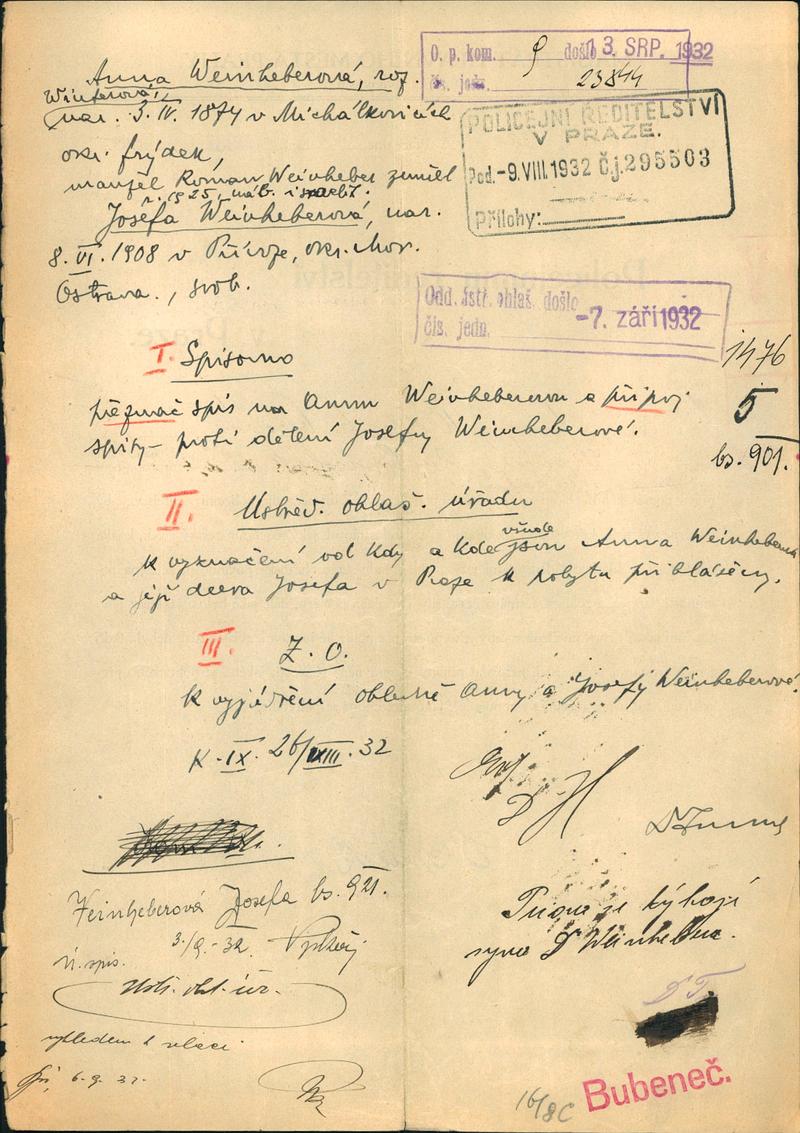 O. p. kom. 9 došlo 13. SRP. 1932
čís. jedn. 23844
POLICEJNÍ ŘEDITELSTVÍ
V PRAZE.
Pod. -9. VIII. 1932 č.j. 295503
Přílohy:
Anna Weinheberová, roz.
Winterová,
nar. 3. IV. 1874 v Michálkovicích
okr. Frýdek,
manžel Roman Weinheber zemřel
r. 1925, náb. israelit.
Josefa Weinheberová, nar.
8. VI. 1908 v Přívoze, okr. Mor.
Ostrava., svob.
Odd. ústř. ohlaš. došlo
čís. jedn. -7. září 1932
1476
5
bs. 901.
I. Spisovno
přeznač spis na Annu Weinheberovou a připoj
spisy - proti dělení Josefy Weinheberové.
II. Ústřed. ohlaš. úřadu
k vyznačení od kdy a kde všude jsou Anna Weinheberová
a její dcera Josefa v Praze k pobytu přihlášeny.
III. Z. O.
k vyjádření ohledně Anny a Josefy Weinheberové.
K. IX. 26/VIII. 32
Weinheberová Josefa bs. 921.
3./9. - 32.
Ú. spis.
Ústř. ohl. úř.
vzhledem k relaci
6. 9. 32.
týkají
syna Dr Weinhebra.
16/8 C
Bubeneč.